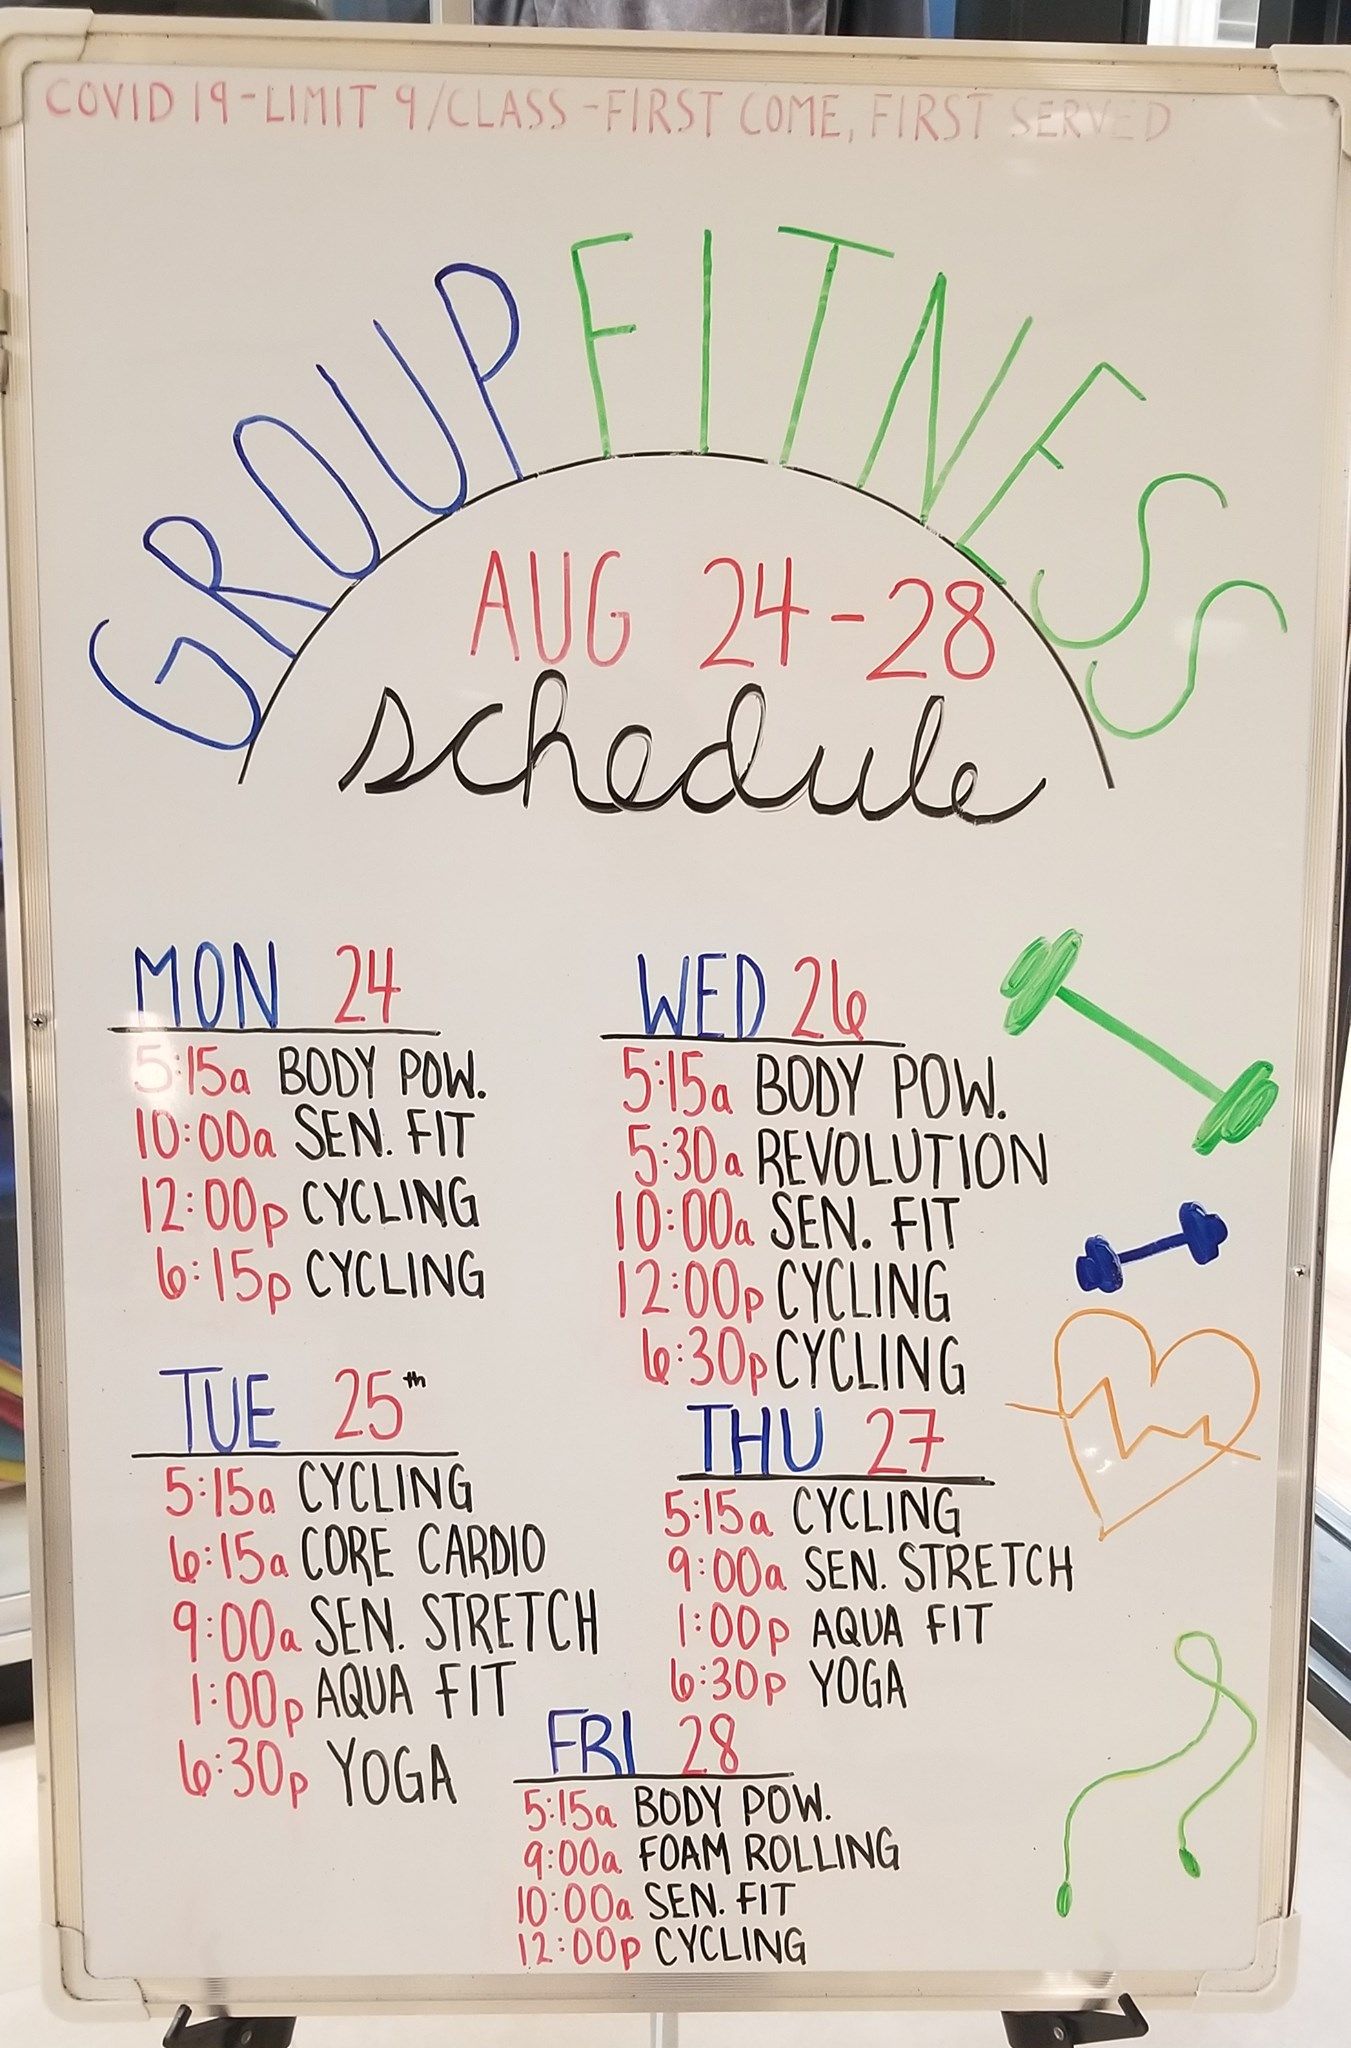 COVID 19-LIMIT 9/CLASS-FIRST COME, FIRST SERVED
GROUP FITNESS
AUG 24-28
schedule
MON 24
5:15a BODY POW.
10:00a SEN. FIT
12:00p CYCLING
6:15p CYCLING
TUE 25th
5:15a CYCLING
6:15a CORE CARDIO
9:00a SEN. STRETCH
1:00p AQUA FIT
6:30p YOGA
WED 26
5:15a BODY POW.
5:30a REVOLUTION
10:00a SEN. FIT
12:00p CYCLING
6:30p CYCLING
THU 27
5:15a CYCLING
9:00a SEN. STRETCH
1:00p AQUA FIT
6:30p YOGA
FRI 28
5:15a BODY POW.
9:00a FOAM ROLLING
10:00a SEN. FIT
12:00p CYCLING